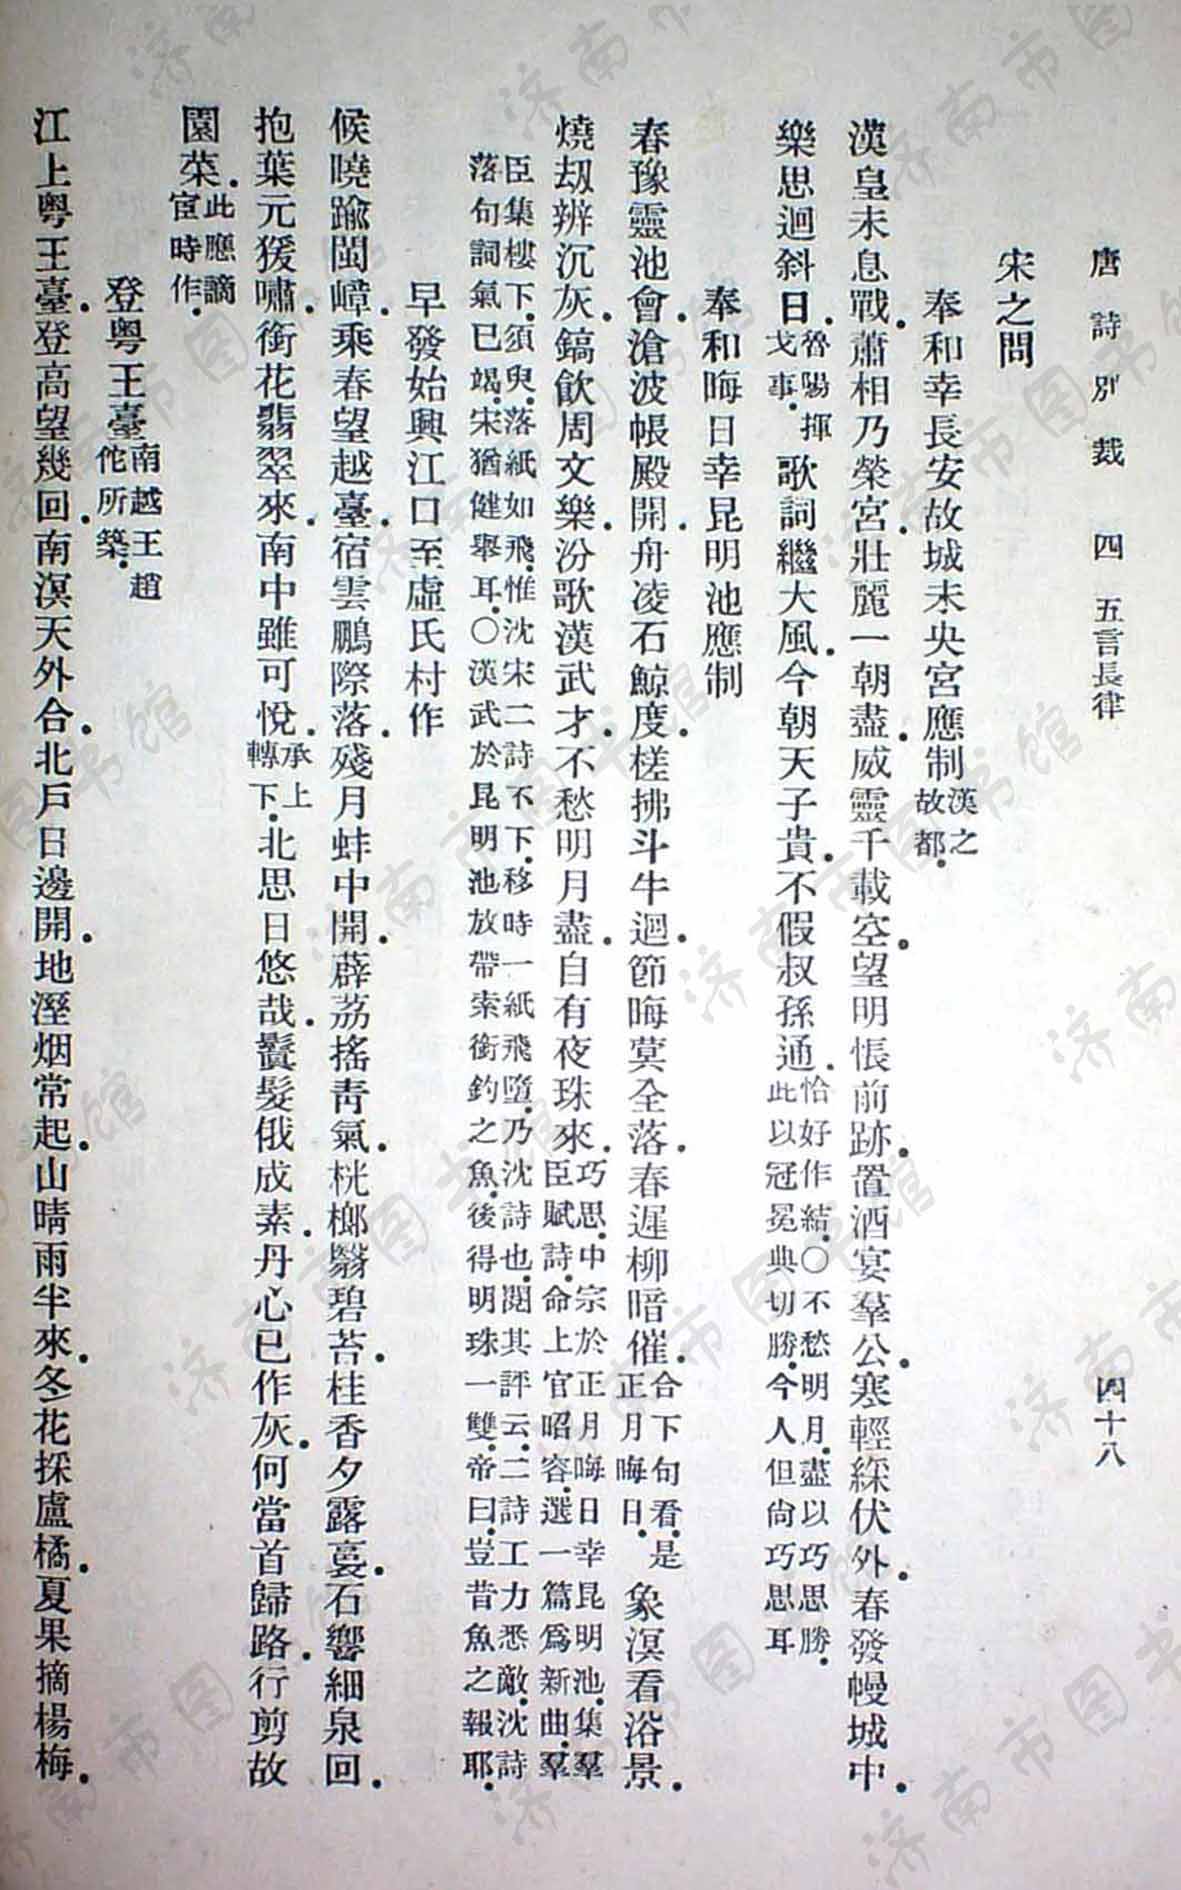 唐詩別裁　四　五言長律　四十八
宋之問
奉和幸長安故城未央宮應制漢之故都.
漢皇未息戰.蕭相乃榮宮.壯麗一朝盡.威靈千載空.望明悵前跡.置酒宴羣公.寒輕綵伏外.春發幔城中.
樂思迴斜日.魯陽揮戈事.歌詞繼大風.今朝天子貴.不假叔孫通.恰好作結.〇不愁明月盡以巧思勝.此以冠冕典切勝.今人但尙巧思耳
奉和晦日幸昆明池應制
春豫靈池會.滄波帳殿開.舟凌石鯨度.槎拂斗牛迴.節晦蓂全落.春遲柳暗催.合下句看.是正月晦日.象溟看浴景.
燒劫辨沉灰.鎬飲周文樂.汾歌漢武才.不愁明月盡.自有夜珠來.巧思.中宗於正月晦日幸昆明池.集羣臣賦詩.命上官昭容.選一篇爲新曲.羣
臣集樓下.須臾.落紙如飛.惟沈宋二詩不下.移時一紙飛墮.乃沈詩也.閱其評云.二詩工力悉敵.沈詩落句詞氣已竭.宋猶健舉耳.〇漢武於昆明池放帶索銜鈎之魚.後得明珠一雙.帝曰.豈昔魚之報耶.
早發始興江口至虛氏村作
候曉踰閩嶂.乘春望越臺.宿雲鵬際落.殘月蚌中開.薜荔搖靑氣.桄榔翳碧苔.桂香夕露裛.石響細泉回.
抱葉元猨嘯.銜花翡翠來.南中雖可悅.承上轉下.北思日悠哉.鬒髮俄成素.丹心已作灰.何當首歸路.行剪故
園萊.此應謫宦時作.
登粤王臺南越王趙佗所築.
江上粤王臺.登高望幾回.南溟天外合.北戶日邊開.地溼烟常起.山晴雨半來.冬花採盧橘.夏果摘楊梅.